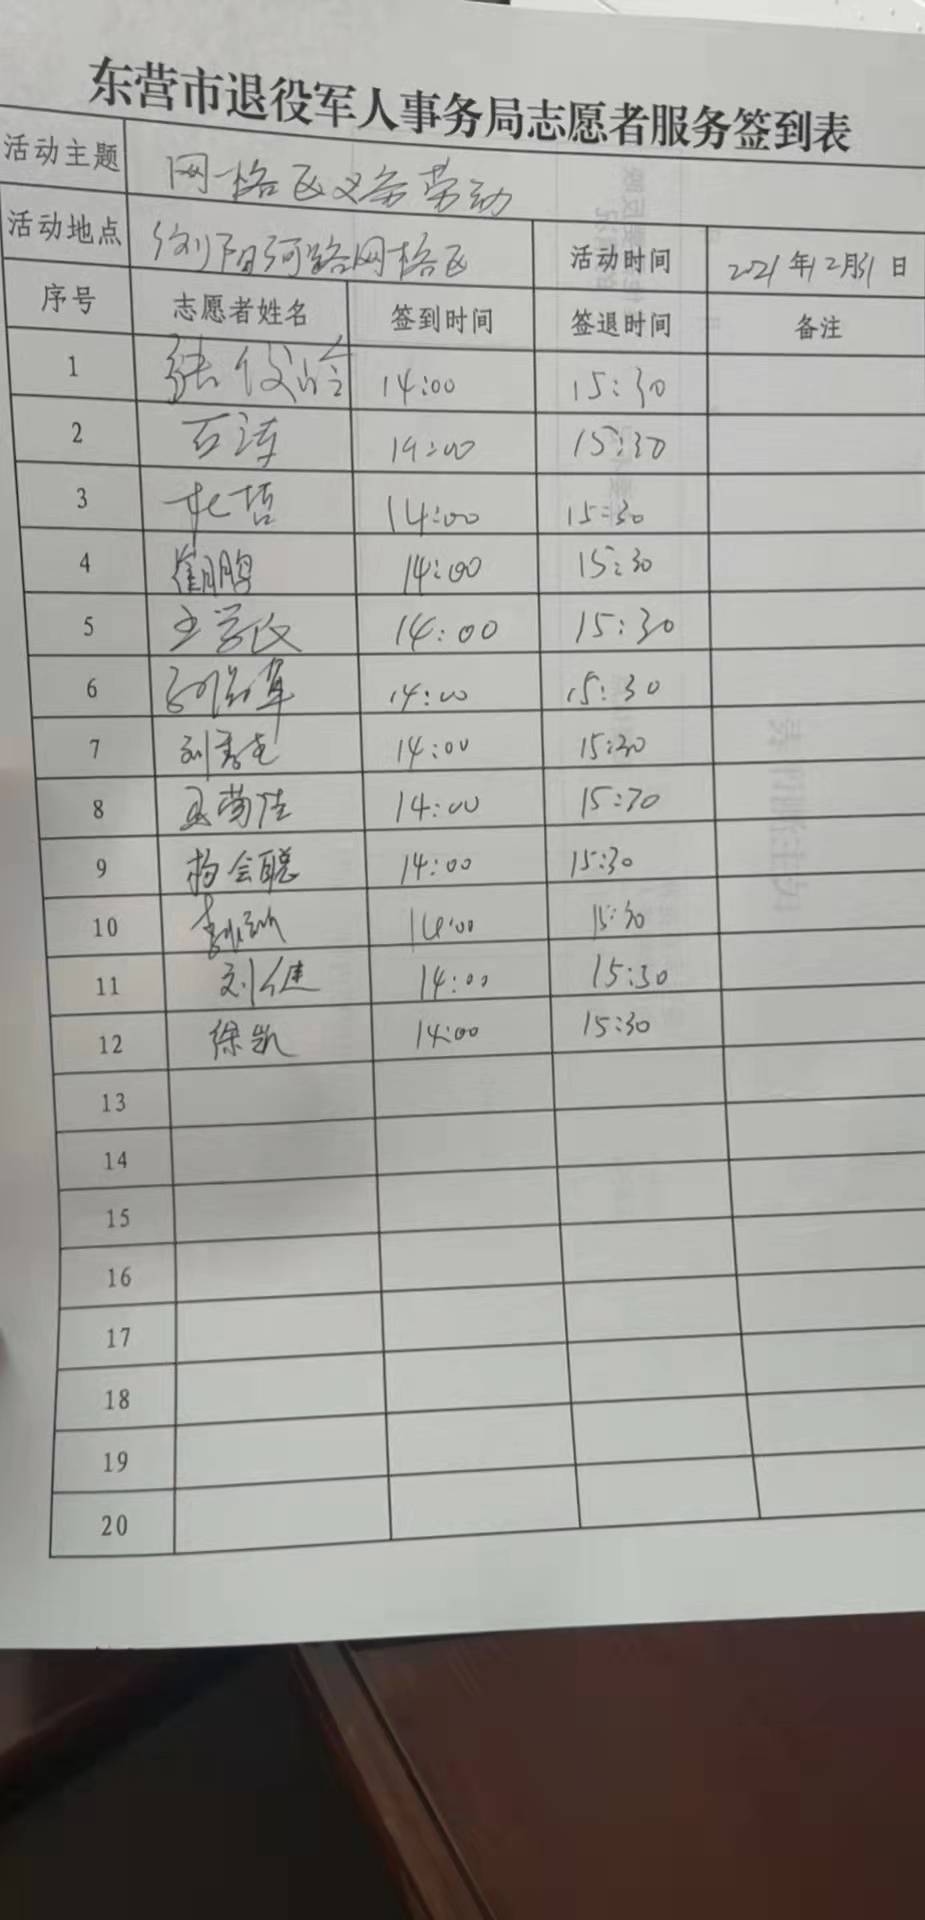 东营市退役军人事务局志愿者服务签到表
活动主题 网格区义务劳动
活动地点 浏阳河路网格区 活动时间 2021年12月31日
序号 志愿者姓名 签到时间 签退时间 备注
1 张俊岭 14:00 15:30
2 石涛 14:00 15:30
3 14:00 15:30
4 崔鹏 14:00 15:30
5 王学政 14:00 15:30
6 14:00 15:30
7 14:00 15:30
8 14:00 15:30
9 杨会聪 14:00 15:30
10 14:00 15:30
11 刘健 14:00 15:30
12 徐凯 14:00 15:30
13
14
15
16
17
18
19
20